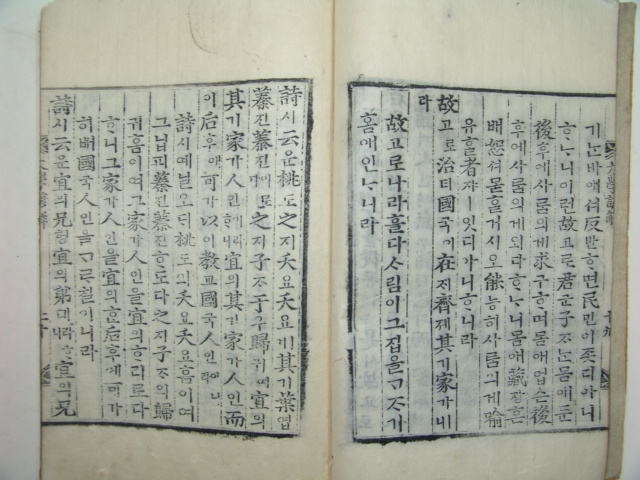 기ᄂᆞᆫ바애셔反반ᄒᆞ면民민이좃디아니
ᄒᆞᄂᆞ니이런故고로君군子ᄌᆞᄂᆞᆫ몸애둔
後후에사ᄅᆞᆷ의게求구ᄒᆞ며몸애업슨後
후에사ᄅᆞᆷ의게외다ᄒᆞᄂᆞ니몸애藏장ᄒᆞᆫ
배恕셔몯ᄒᆞᆯ거시오能능히사ᄅᆞᆷ의게喻
유ᄒᆞᆯ者쟈ㅣ잇디아니ᄒᆞ니라
故고로治티國국이在ᄌᆡ齊졔其기家가ᄒᆞ니
라
故고로나라흘다ᄉᆞ림이그집을ᄀᆞᄌᆞ기
홈애인ᄂᆞ니라
詩시云운桃도之지夭요夭요ㅣ여其기葉엽
蓁진蓁진이로다之지子ᄌᆞ于우歸귀여宜의
其기家가人인이라ᄒᆞ니宜의其기家가人인而
이后후에可가以이敎교國국人인이니라
詩시예닐오ᄃᆡ桃도의夭요夭요홈이여
그닙피蓁진蓁진ᄒᆞ도다之지子ᄌᆞ의歸
귀홈이여그家가人인을宜의ᄒᆞ리로다
ᄒᆞ니그家가人인을宜의ᄒᆞᆫ后후에可가
히ᄡᅥ國국人인을ᄀᆞᄅᆞ칠이니라
詩시云운宜의兄형宜의弟뎨라ᄒᆞ니宜의兄